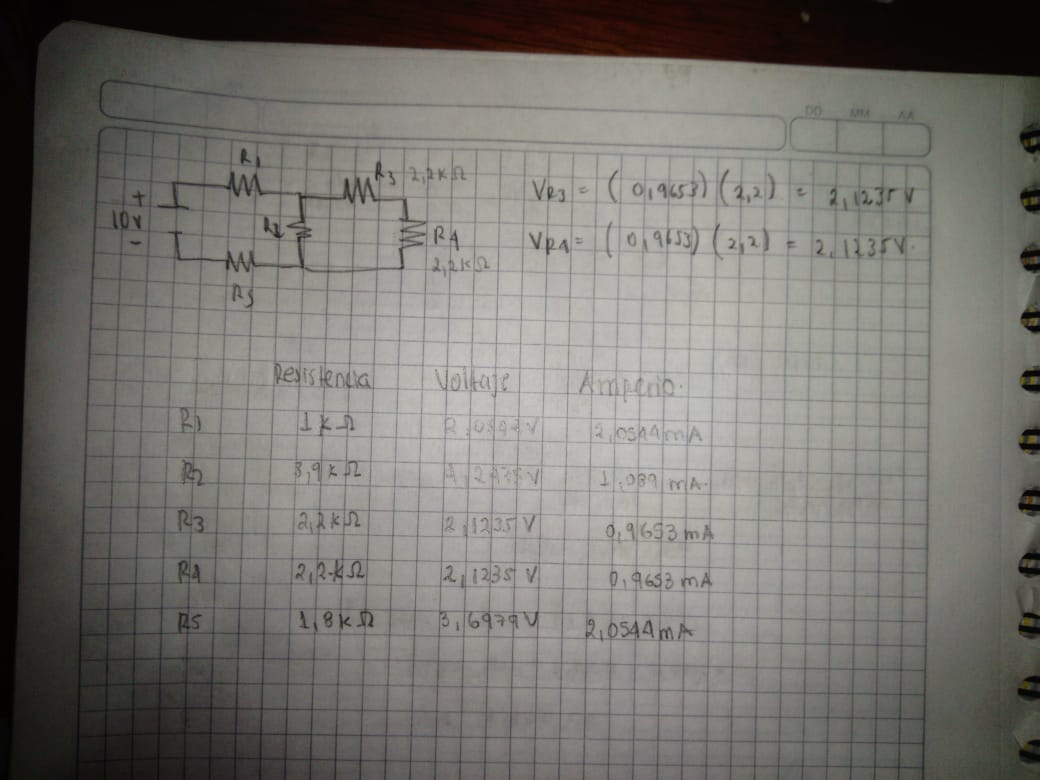 DD MM AA
R1
R3 2,2kΩ
+
10V
-
R2
R4
2,2kΩ
R5
VR3 = (0,9653)(2,2) = 2,1235V
VR4 = (0,9653)(2,2) = 2,1235V.
Resistencia Voltaje Amperio.
R1 1kΩ 2,0544mA
R2 3,9kΩ 1,089 mA.
R3 2,2kΩ 2,1235V 0,9653mA
R4 2,2kΩ 2,1235V 0,9653mA
R5 1,8kΩ 3,6979V 2,0544mA